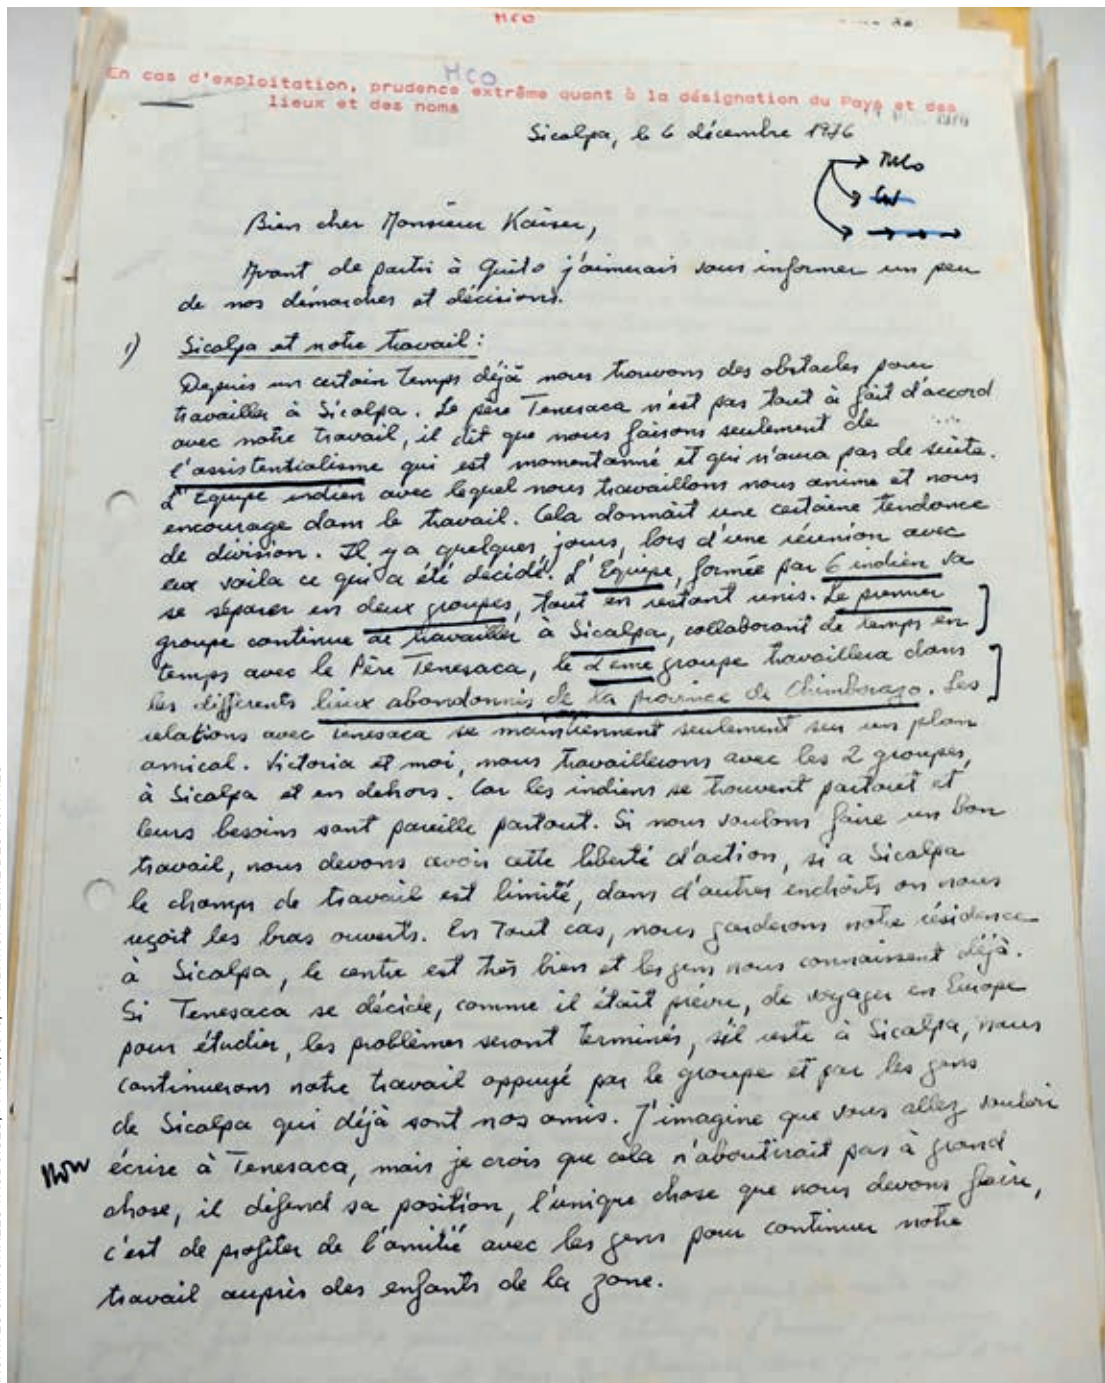 MCO
MCO
En cas d'exploitation, prudence extrême quant à la désignation du Pays et des
lieux et des noms
Sicalpa, le 6 décembre 1976
Bien cher Monsieur Kaiser,
Avant de partir à Quito j'aimerais vous informer un peu
de nos démarches et décisions.
1) Sicalpa et notre travail :
Depuis un certain temps déjà nous trouvons des obstacles pour
travailler à Sicalpa. Le père Tenesaca n'est pas tout à fait d'accord
avec notre travail, il dit que nous faisons seulement de
l'assistentialisme qui est momentanné et qui n'aura pas de suite.
L'Equipe indien avec lequel nous travaillons nous anime et nous
encourage dans le travail. Cela donnait une certaine tendance
de division. Il y a quelques jours, lors d'une réunion avec
eux voila ce qui a été décidé. L'Equipe, formée par 6 indien va
se séparer en deux groupes, tout en restant unis. Le premier
groupe continue de travailler à Sicalpa, collaborant de temps en
temps avec le Père Tenesaca, le 2ème groupe travaillera dans
les differents lieux abandonnés de la province de Chimborazo. Les
relations avec Tenesaca se maintiennent seulement sur un plan
amical. Victoria et moi, nous travaillerons avec les 2 groupes,
à Sicalpa et en dehors. Car les indiens se trouvent partout et
leurs besoins sont pareille partout. Si nous voulons faire un bon
travail, nous devons avoir cette liberté d'action, si a Sicalpa
le champs de travail est limité, dans d'autres endroits on nous
reçoit les bras ouverts. En Tout cas, nous garderons notre résidence
à Sicalpa, le centre est très bien et les gens nous connaissent déjà.
Si Tenesaca se décide, comme il était prévu, de voyager en Europe
pour étudier, les problèmes seront terminés, s'il reste à Sicalpa, nous
continuerons notre travail appuyé par le groupe et par les gens
de Sicalpa qui déjà sont nos amis. J'imagine que vous allez vouloir
écrire à Tenesaca, mais je crois que cela n'aboutirait pas à grand
chose, il défend sa position, l'unique chose que nous devons faire,
c'est de profiter de l'amitié avec les gens pour continuer notre
travail auprès des enfants de la zone.